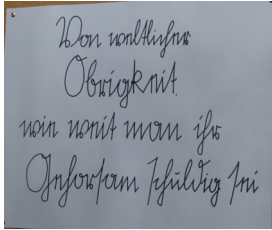 Von weltlicher
Obrigkeit.
wie weit man ihr
Gehorsam schuldig sei